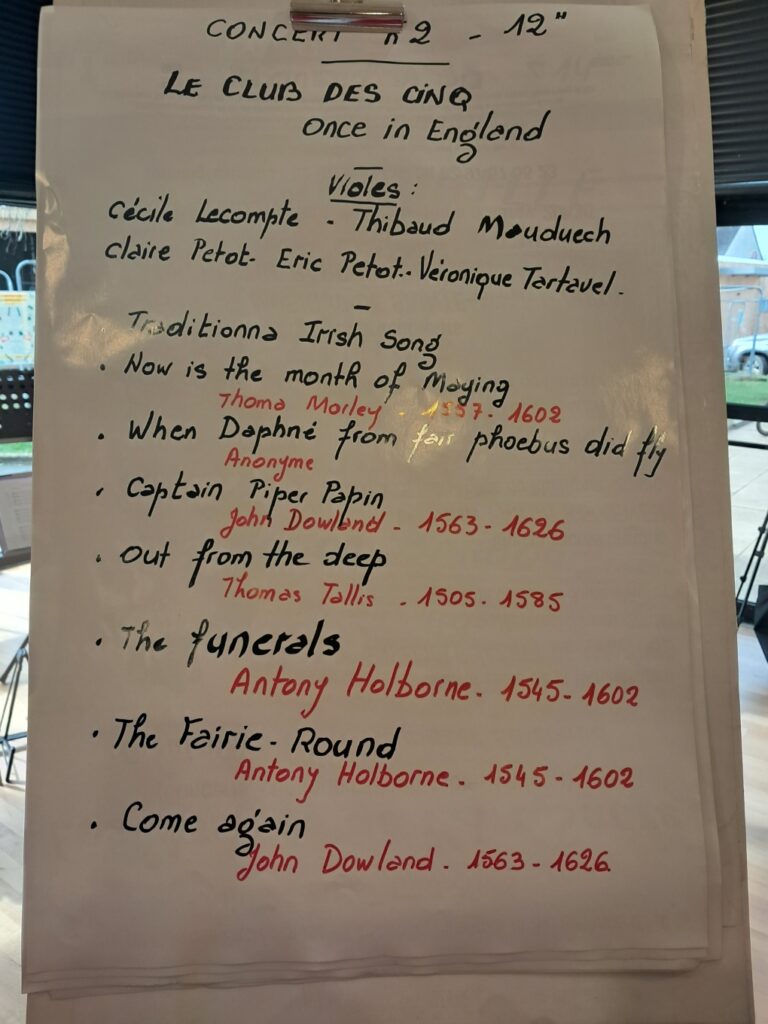 CONCERT n 2 - 12"
LE CLUB DES CINQ
Once in England
Violes :
Cécile Lecompte - Thibaud Mauduech
Claire Petot - Eric Petot - Véronique Tartavel.
Traditionna Irish Song
. Now is the month of Maying
Thoma Morley - 1557 - 1602
. When Daphné from fair phoebus did fly
Anonyme
. Captain Piper Papin
John Dowland - 1563 - 1626
. Out from the deep
Thomas Tallis - 1505 - 1585
. The funerals
Antony Holborne - 1545 - 1602
. The Fairie - Round
Antony Holborne - 1545 - 1602
. Come again
John Dowland - 1563 - 1626